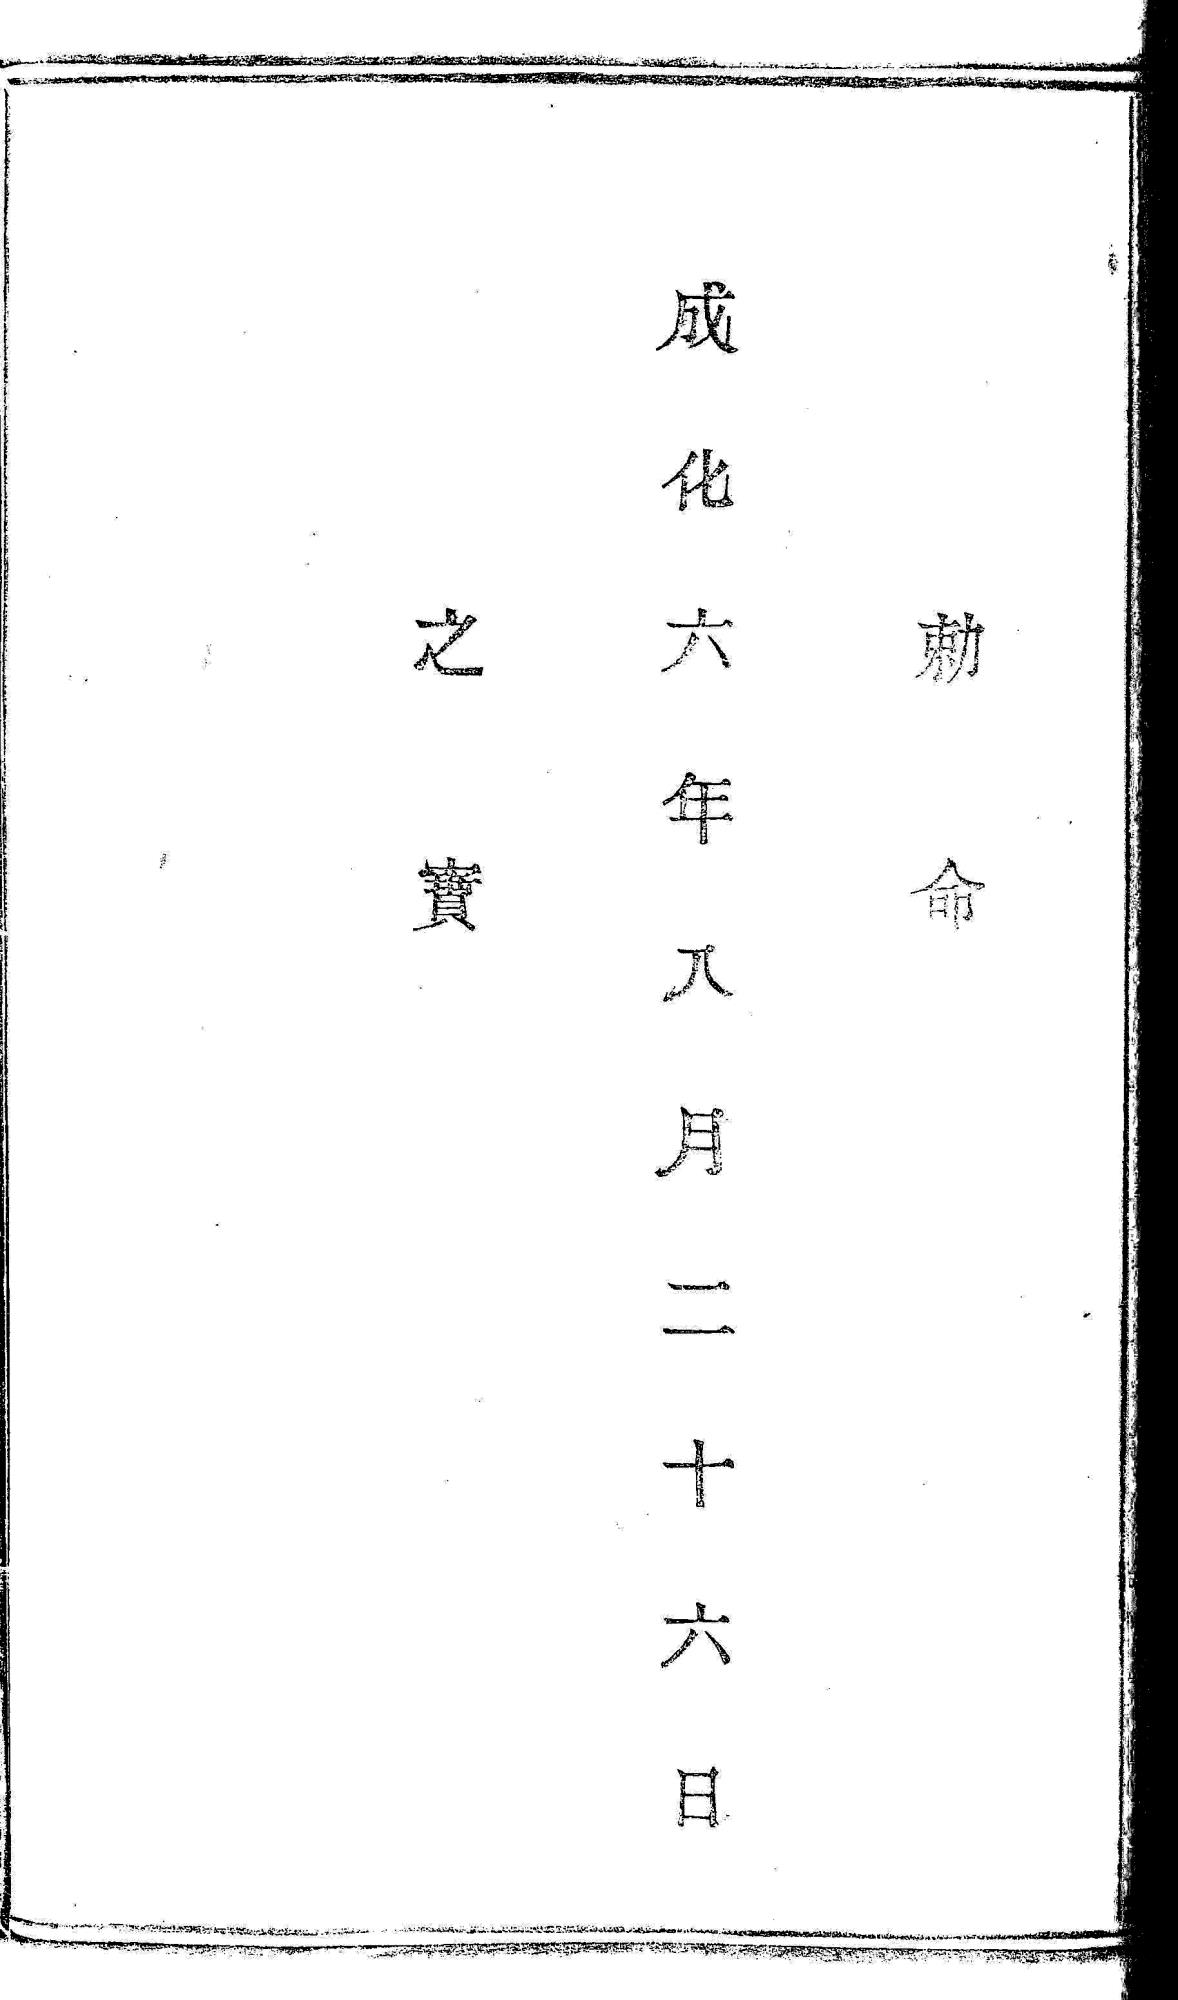 勅命
成化六年八月二十六日
之寶